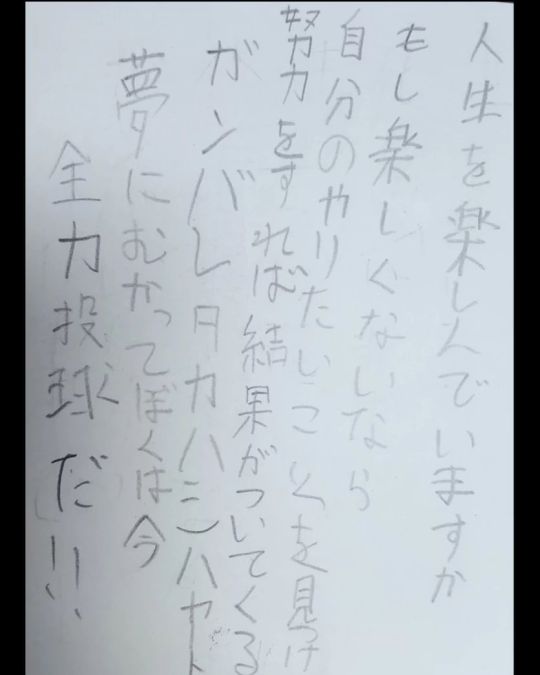 人生を楽しんでいますか
もし楽しくないなら
自分のやりたいことを見つけ
努力をすれば結果がついてくる
ガンバレタカハシハヤト
夢にむかってぼくは今
全力投球だ!!